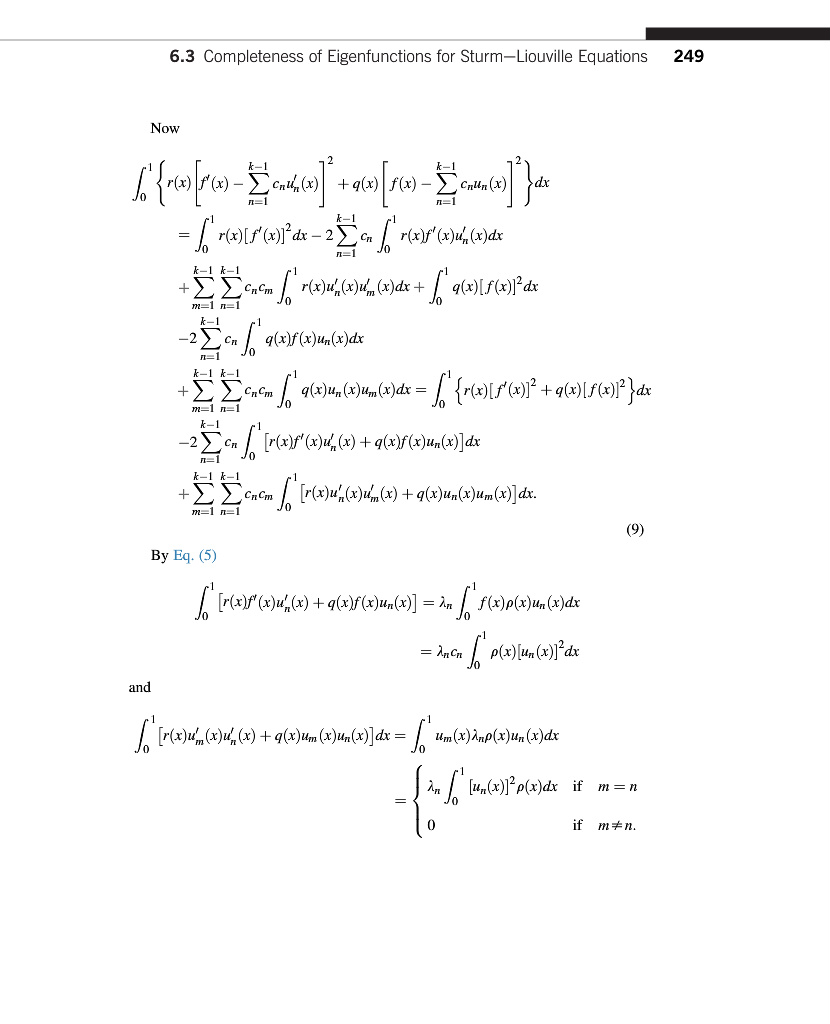 6.3 Completeness of Eigenfunctions for Sturm–Liouville Equations 249
Now
∫₀¹ { r(x) [ f′(x) − ∑_{n=1}^{k−1} cₙu′ₙ(x) ]² + q(x) [ f(x) − ∑_{n=1}^{k−1} cₙuₙ(x) ]² } dx
= ∫₀¹ r(x)[f′(x)]²dx − 2 ∑_{n=1}^{k−1} cₙ ∫₀¹ r(x)f′(x)u′ₙ(x)dx
+ ∑_{m=1}^{k−1} ∑_{n=1}^{k−1} cₙcₘ ∫₀¹ r(x)u′ₙ(x)u′ₘ(x)dx + ∫₀¹ q(x)[f(x)]²dx
−2 ∑_{n=1}^{k−1} cₙ ∫₀¹ q(x)f(x)uₙ(x)dx
+ ∑_{m=1}^{k−1} ∑_{n=1}^{k−1} cₙcₘ ∫₀¹ q(x)uₙ(x)uₘ(x)dx = ∫₀¹ { r(x)[f′(x)]² + q(x)[f(x)]² } dx
−2 ∑_{n=1}^{k−1} cₙ ∫₀¹ [r(x)f′(x)u′ₙ(x) + q(x)f(x)uₙ(x)]dx
+ ∑_{m=1}^{k−1} ∑_{n=1}^{k−1} cₙcₘ ∫₀¹ [r(x)u′ₙ(x)u′ₘ(x) + q(x)uₙ(x)uₘ(x)]dx.
(9)
By Eq. (5)
∫₀¹ [r(x)f′(x)u′ₙ(x) + q(x)f(x)uₙ(x)] = λₙ ∫₀¹ f(x)ρ(x)uₙ(x)dx
= λₙcₙ ∫₀¹ ρ(x)[uₙ(x)]²dx
and
∫₀¹ [r(x)u′ₘ(x)u′ₙ(x) + q(x)uₘ(x)uₙ(x)]dx = ∫₀¹ uₘ(x)λₙρ(x)uₙ(x)dx
= { λₙ ∫₀¹ [uₙ(x)]²ρ(x)dx if m = n
0 if m≠n.